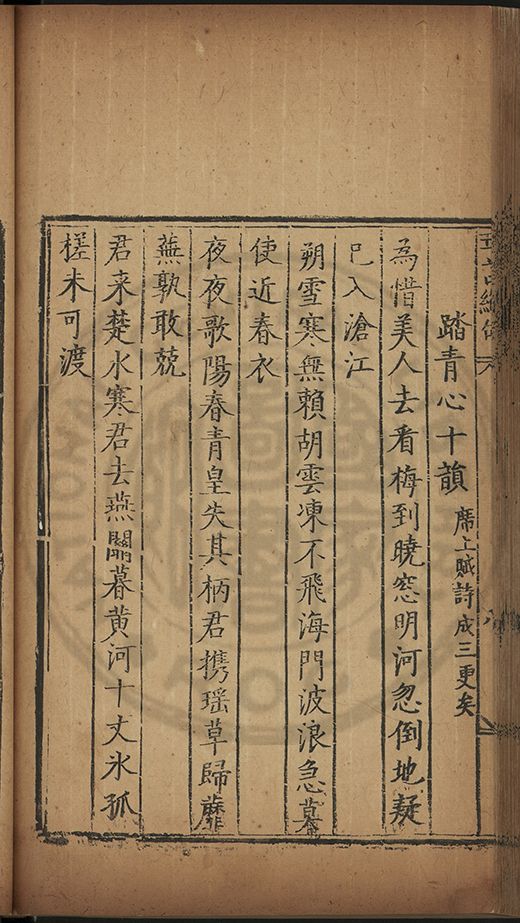 踏青心十韻 席上賦詩成三更矣
為惜美人去看梅到曉窓明河忽倒地疑
已入滄江
朔雪寒無賴胡雲凍不飛海門波浪急莫
使近春衣
夜夜歌陽春青皇失其柄君攜瑶草歸蘼
蕪孰敢競
君来楚水寒君去燕關暮黄河十丈氷孤
槎未可渡